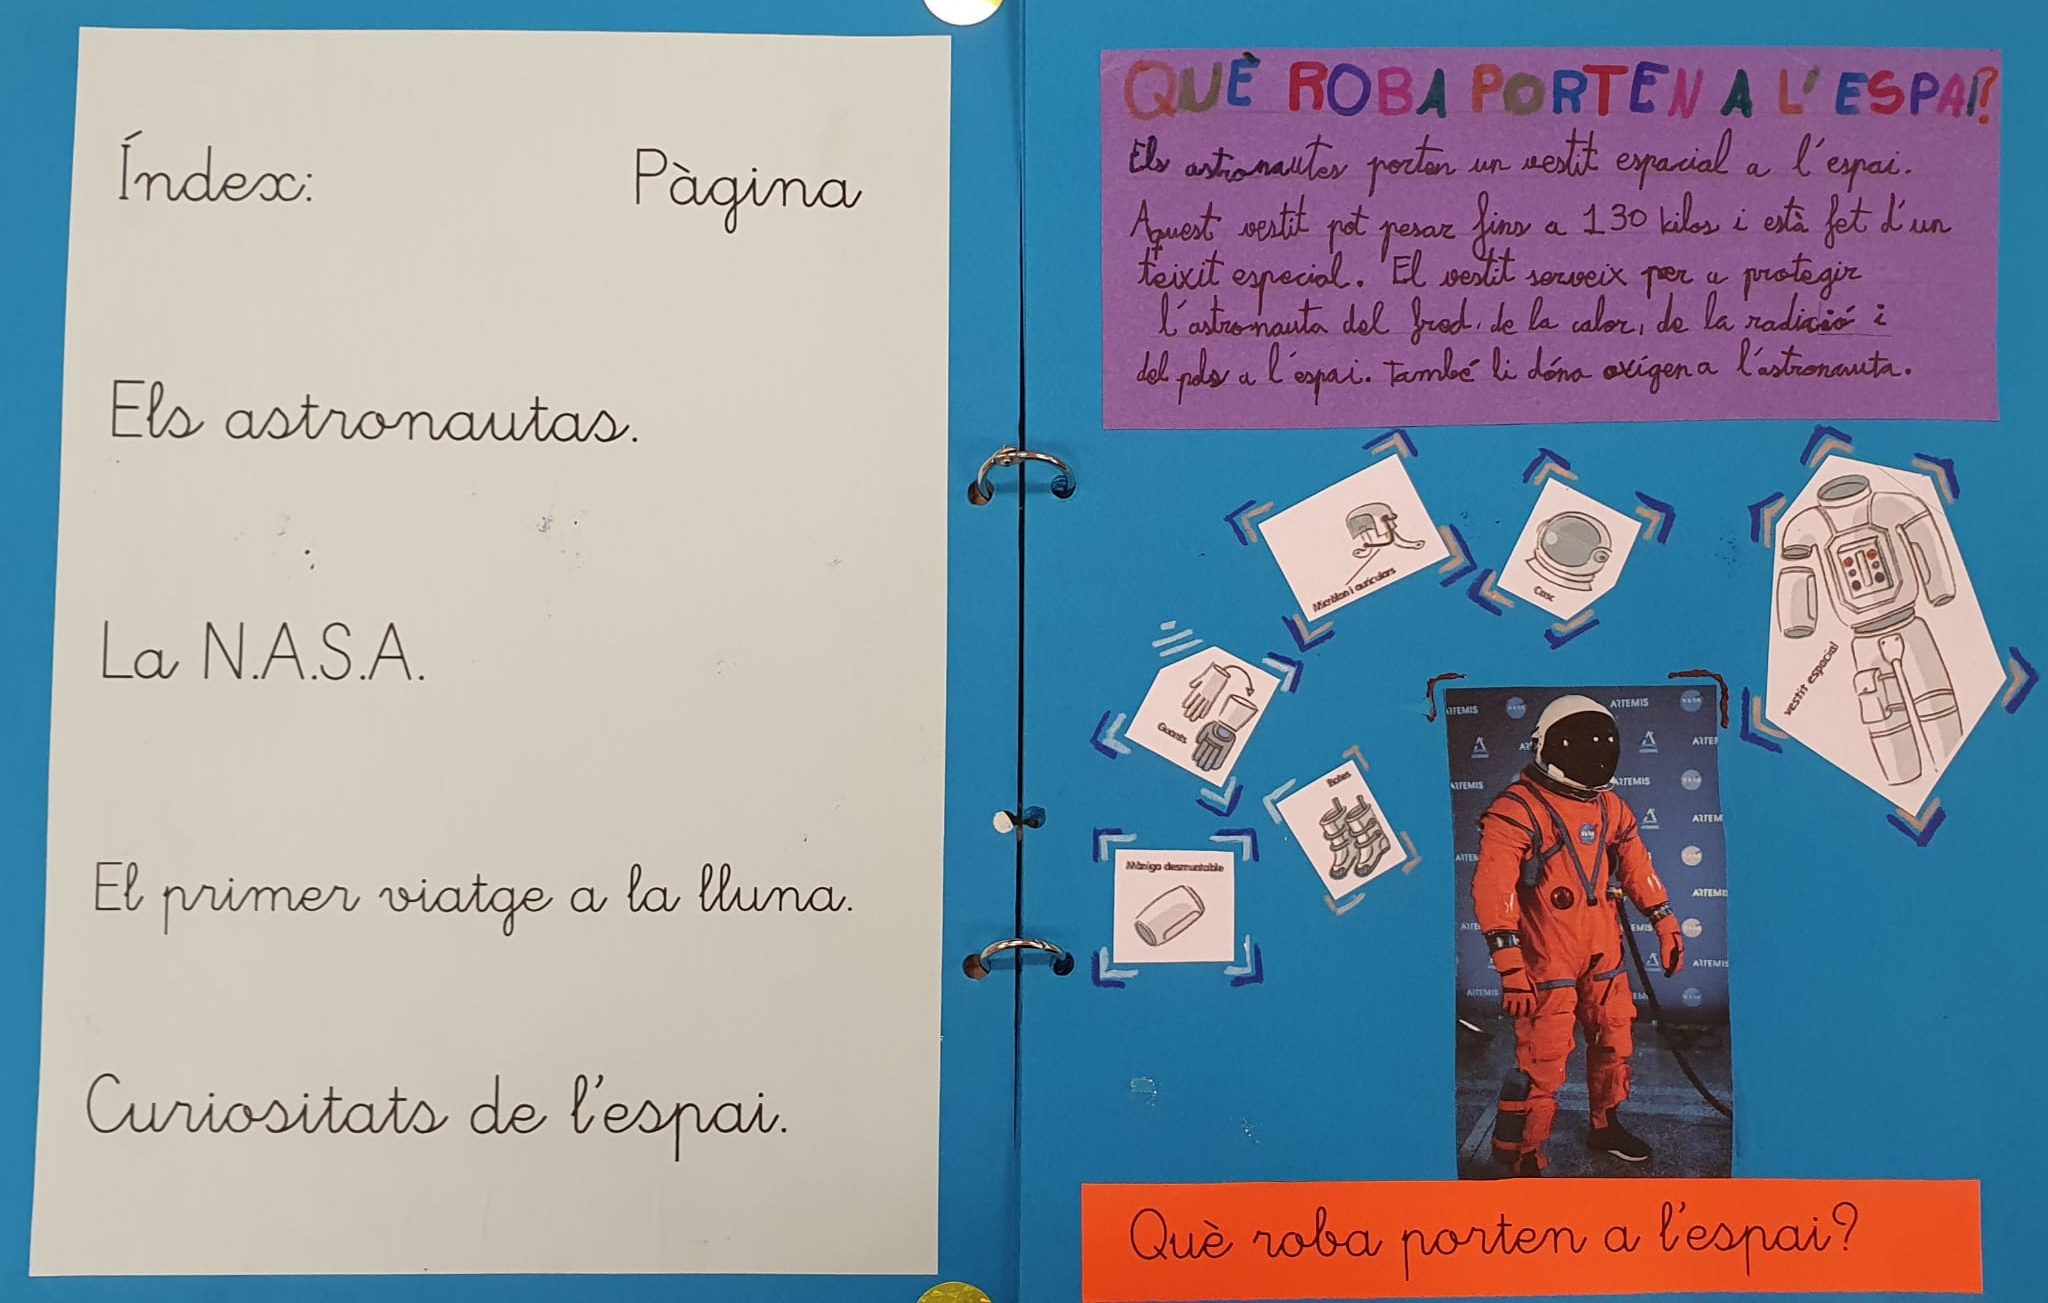 Índex: Pàgina
Els astronautas.
La N.A.S.A.
El primer viatge a la lluna.
Curiositats de l'espai.
QUÈ ROBA PORTEN A L'ESPAI?
Els astronautes porten un vestit espacial a l'espai.
Aquest vestit pot pesar fins a 130 kilos i està fet d'un
teixit especial. El vestit serveix per a protegir
l'astronauta del fred, de la calor, de la radiació i
del pols a l'espai. També li dóna oxígen a l'astronauta.
Micròfon i auriculars
Casc
vestit espacial
Guants
Botes
Màniga desmuntable
ARTEMIS
ARTEMIS
ARTEMIS
ARTEMIS
ARTEMIS
ARTEMIS
NASA
Què roba porten a l'espai?